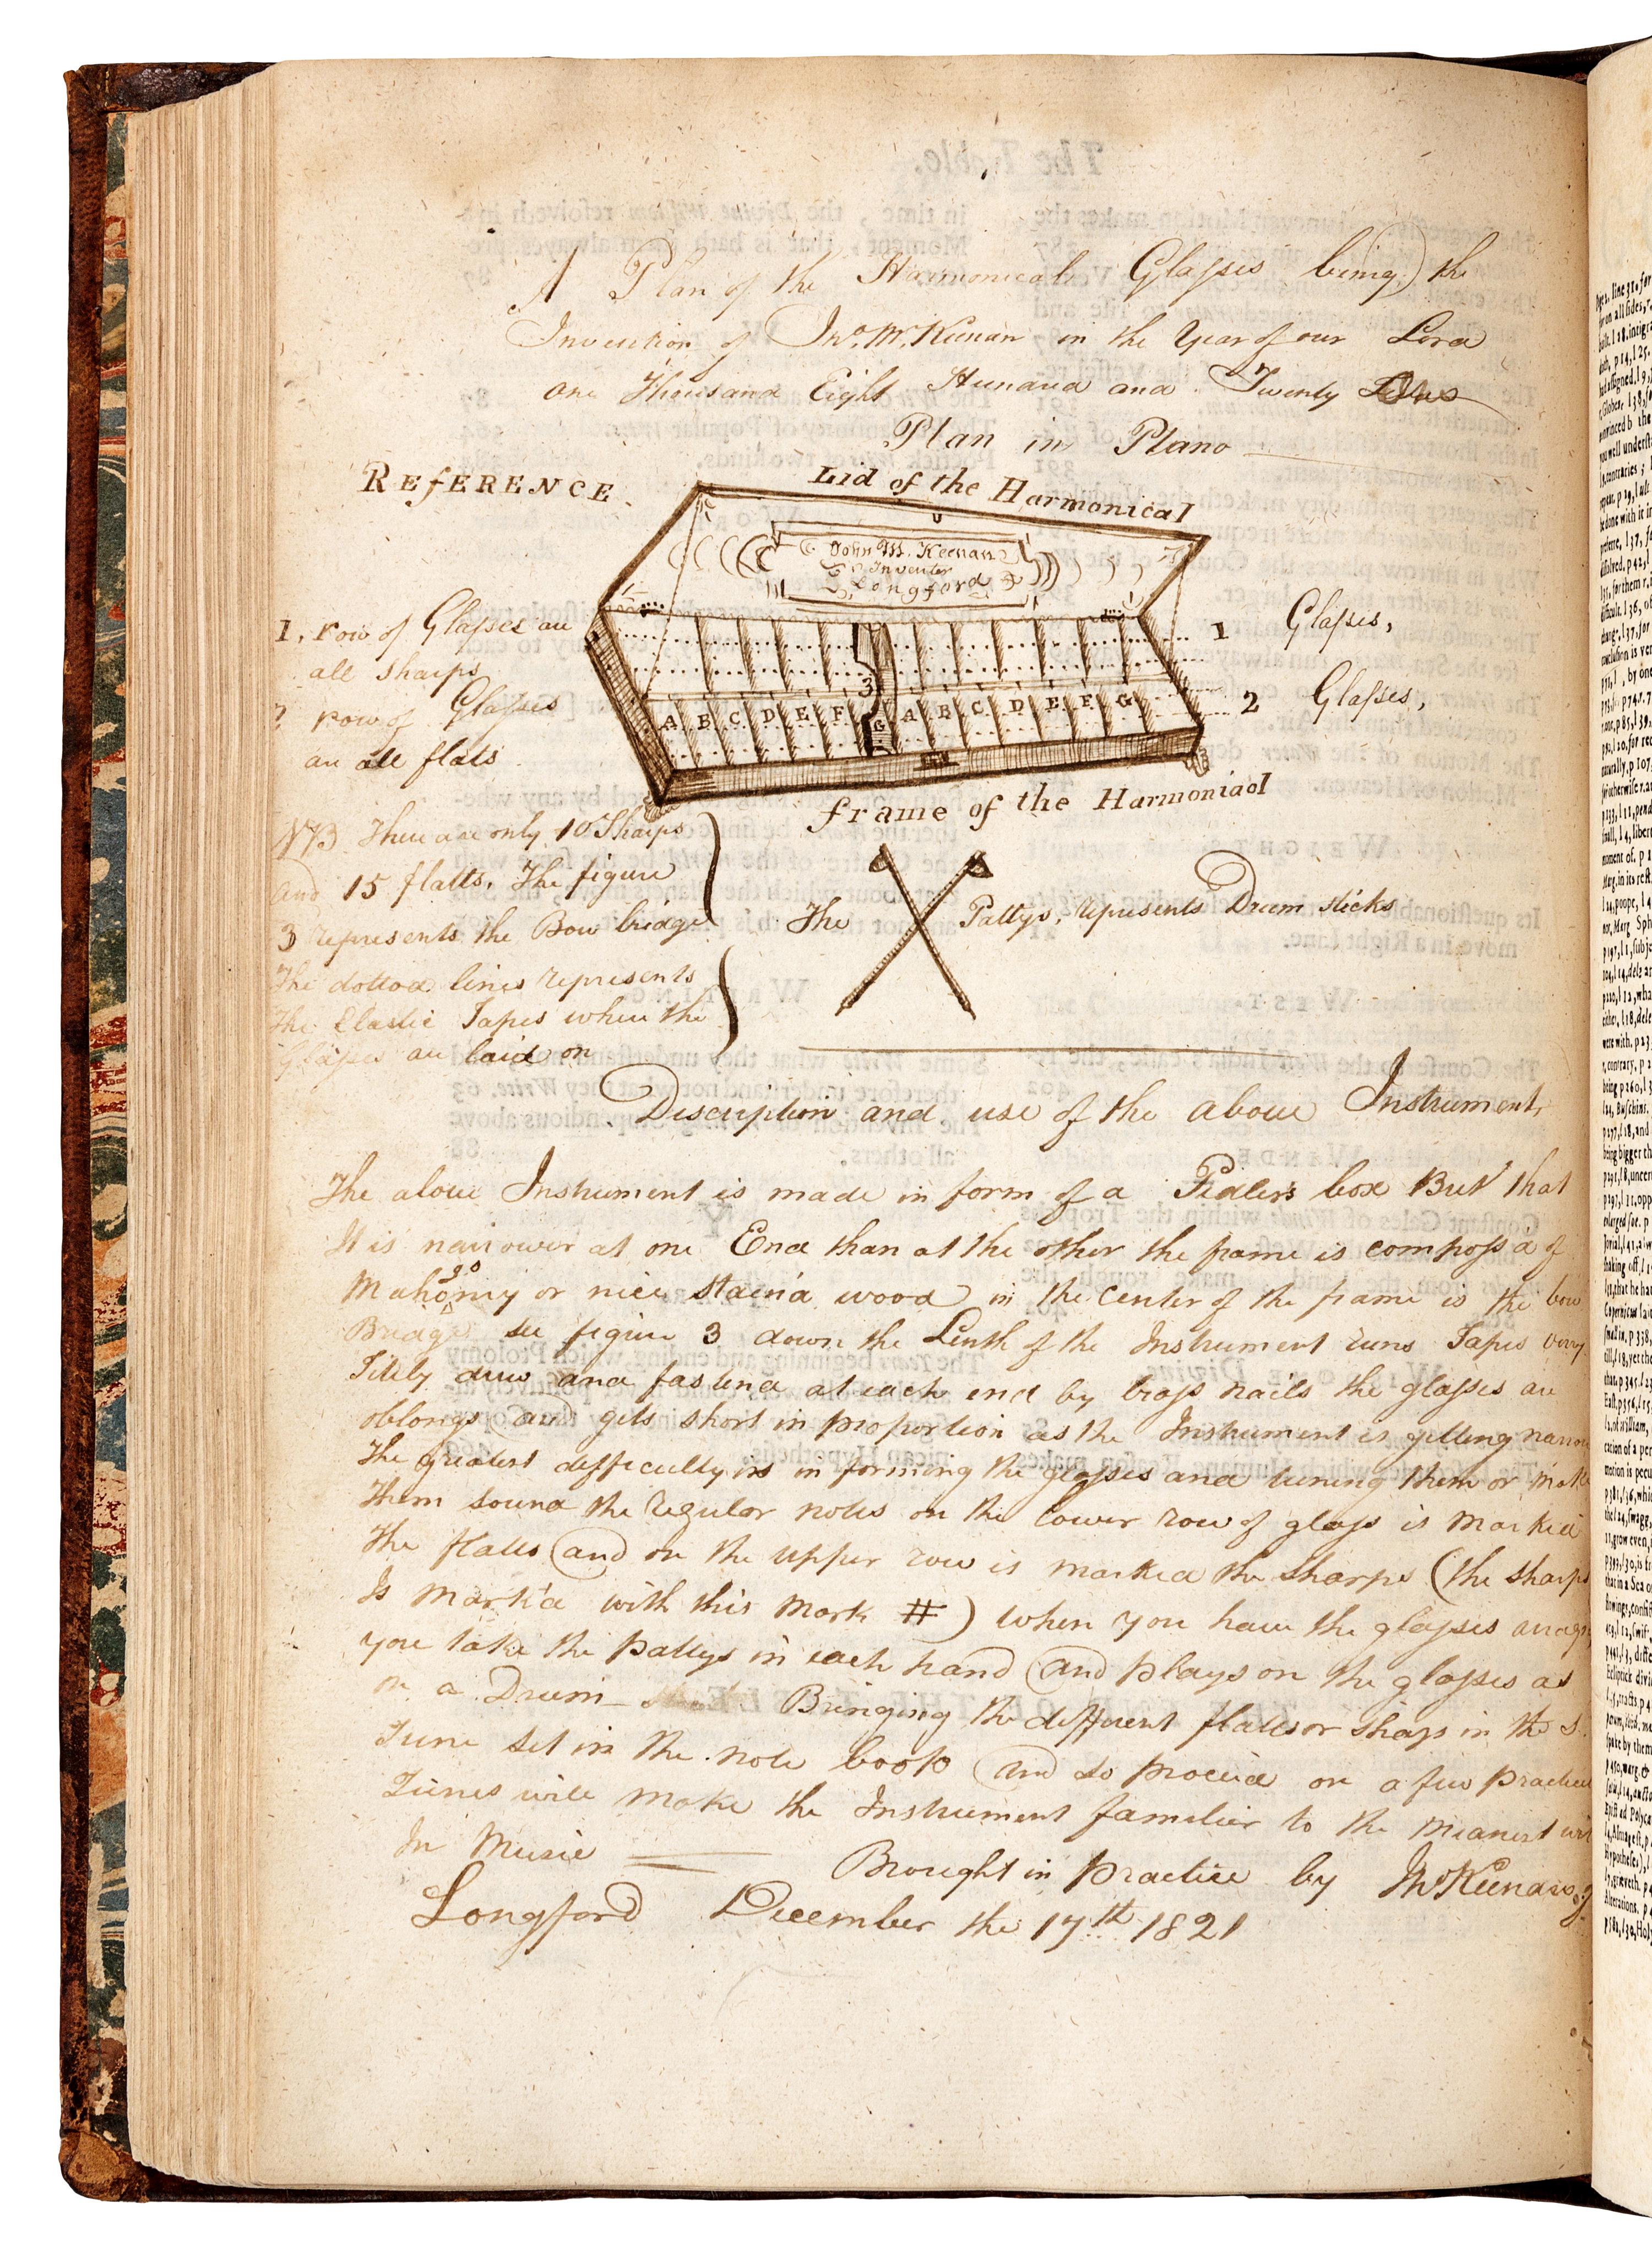 A Plan of the Harmonical Glasses being the
Invention of Jno. McKeenan in the Year of our Lord
one Thousand Eight Hundred and Twenty One
Plan in Plano
REfERENCE.
Lid of the Harmonical
John M. Keenan
Inventer
Longford
1, row of Glasses are
all sharps
2 row of Glasses
are all flats
1 Glasses,
2 Glasses,
3
A B C D E F G A B C D E F G
frame of the Harmoniacl
NB There are only 10 Sharps
and 15 flatts. The figure
3 represents the Bow bridge
The dotted lines represents
the Elastic Tapes where the
Glasses are laid on
The Pattys, represents Drum sticks
Description and use of the above Instrument,
The above Instrument is made in form of a Fidler's box But that
It is narrower at one End than at the other the frame is compos'd of
Mahogony or nice stain'd wood in the Center of the frame is the bow
Bridge see figure 3 down the Lenth of the Instrument runs Tapes very
Titely drew and fastend at each end by brass nails the glasses are
oblongs and gets short in proportion as the Instrument is getting narrow
The greatest difficulty is in forming the glasses and tuning them or make
them sound the regular notes on the lower row of glass is marked
the flatts and on the upper row is marked the sharps (the sharps
Is mark'd with this mark #) when you have the glasses
you take the pattys in each hand and plays on the glasses as
on a Drum Bringing the different flatts or sharps in the
Tune set in the note book and so proceed on a few practice
Tunes will make the Instrument familier to the meanest
In Music
Brought in practice by McKeenan
Longford December the 17th 1821